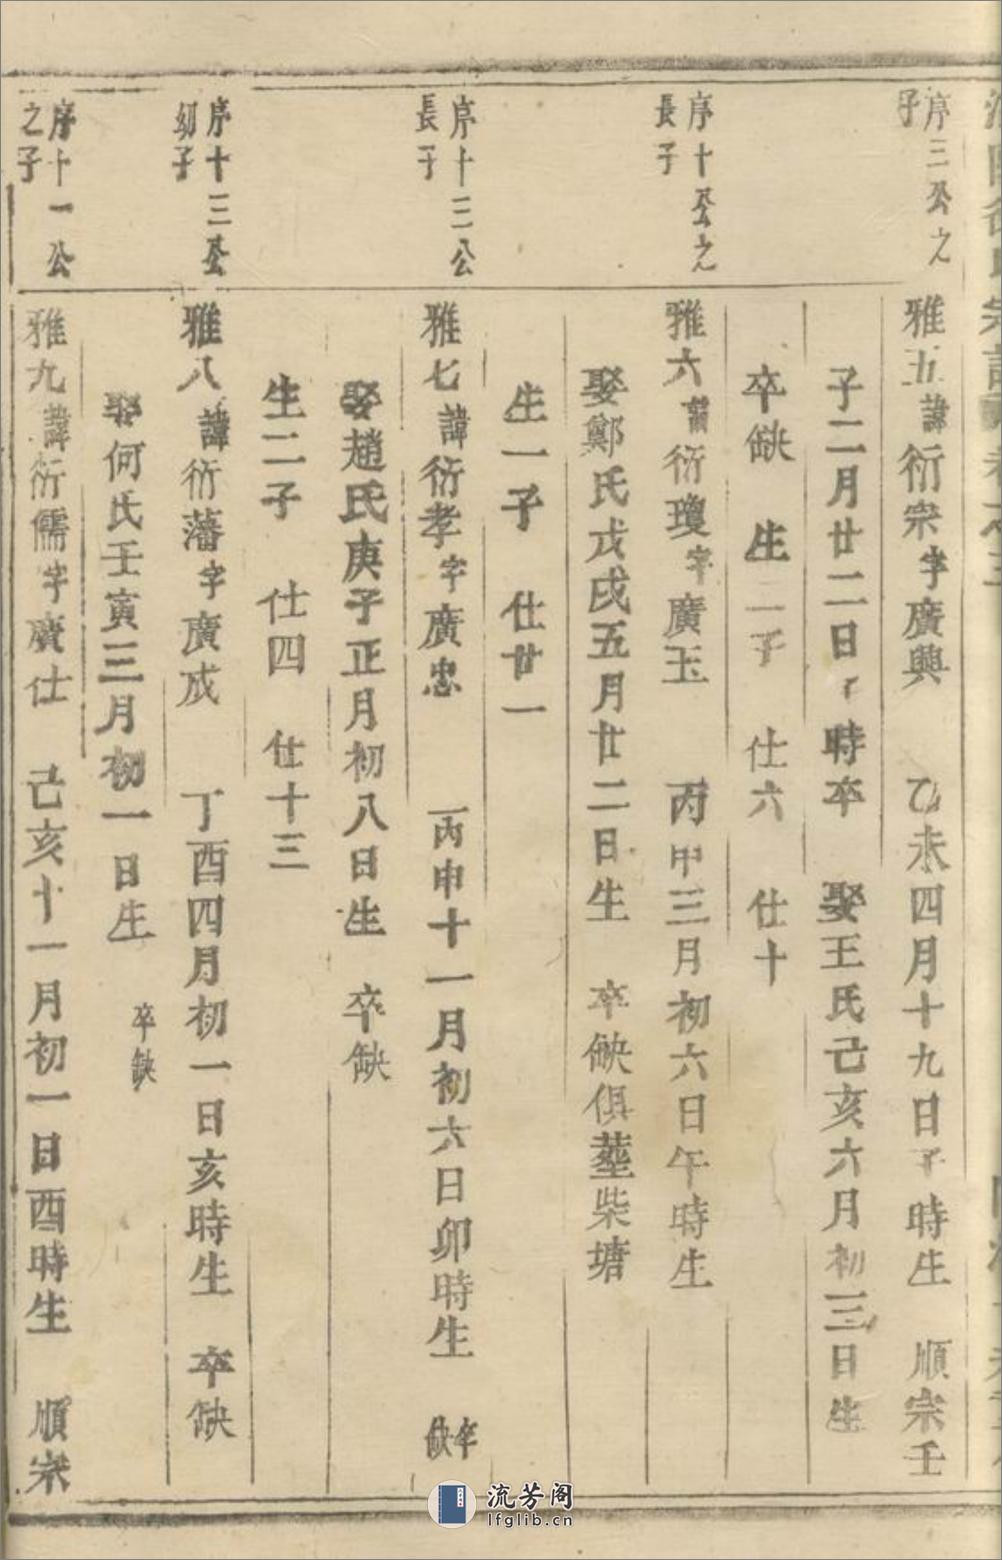 序三公之
子
雅五諱衍宗字廣興 乙未四月十九日子時生 順宗壬
子二月廿二日子時卒 娶王氏己亥六月初三日生
卒缺 生二子 仕六 仕十
序十公之
長子
雅六諱衍瓊字廣玉 丙申三月初六日午時生
娶鄭氏戊戌五月廿二日生 卒缺俱葬柴塘
生一子 仕廿一
序十三公
長子
雅七諱衍孝字廣忠 丙申十一月初六日卯時生 卒缺
娶趙氏庚子正月初八日生 卒缺
生二子 仕四 仕十三
序十三公
幼子
雅八諱衍藩字廣成 丁酉四月初一日亥時生 卒缺
娶何氏壬寅三月初一日生 卒缺
序十一公
之子
雅九諱衍儒字廣仕 己亥十一月初一日酉時生 順宗
流芳阁
lfglib.cn